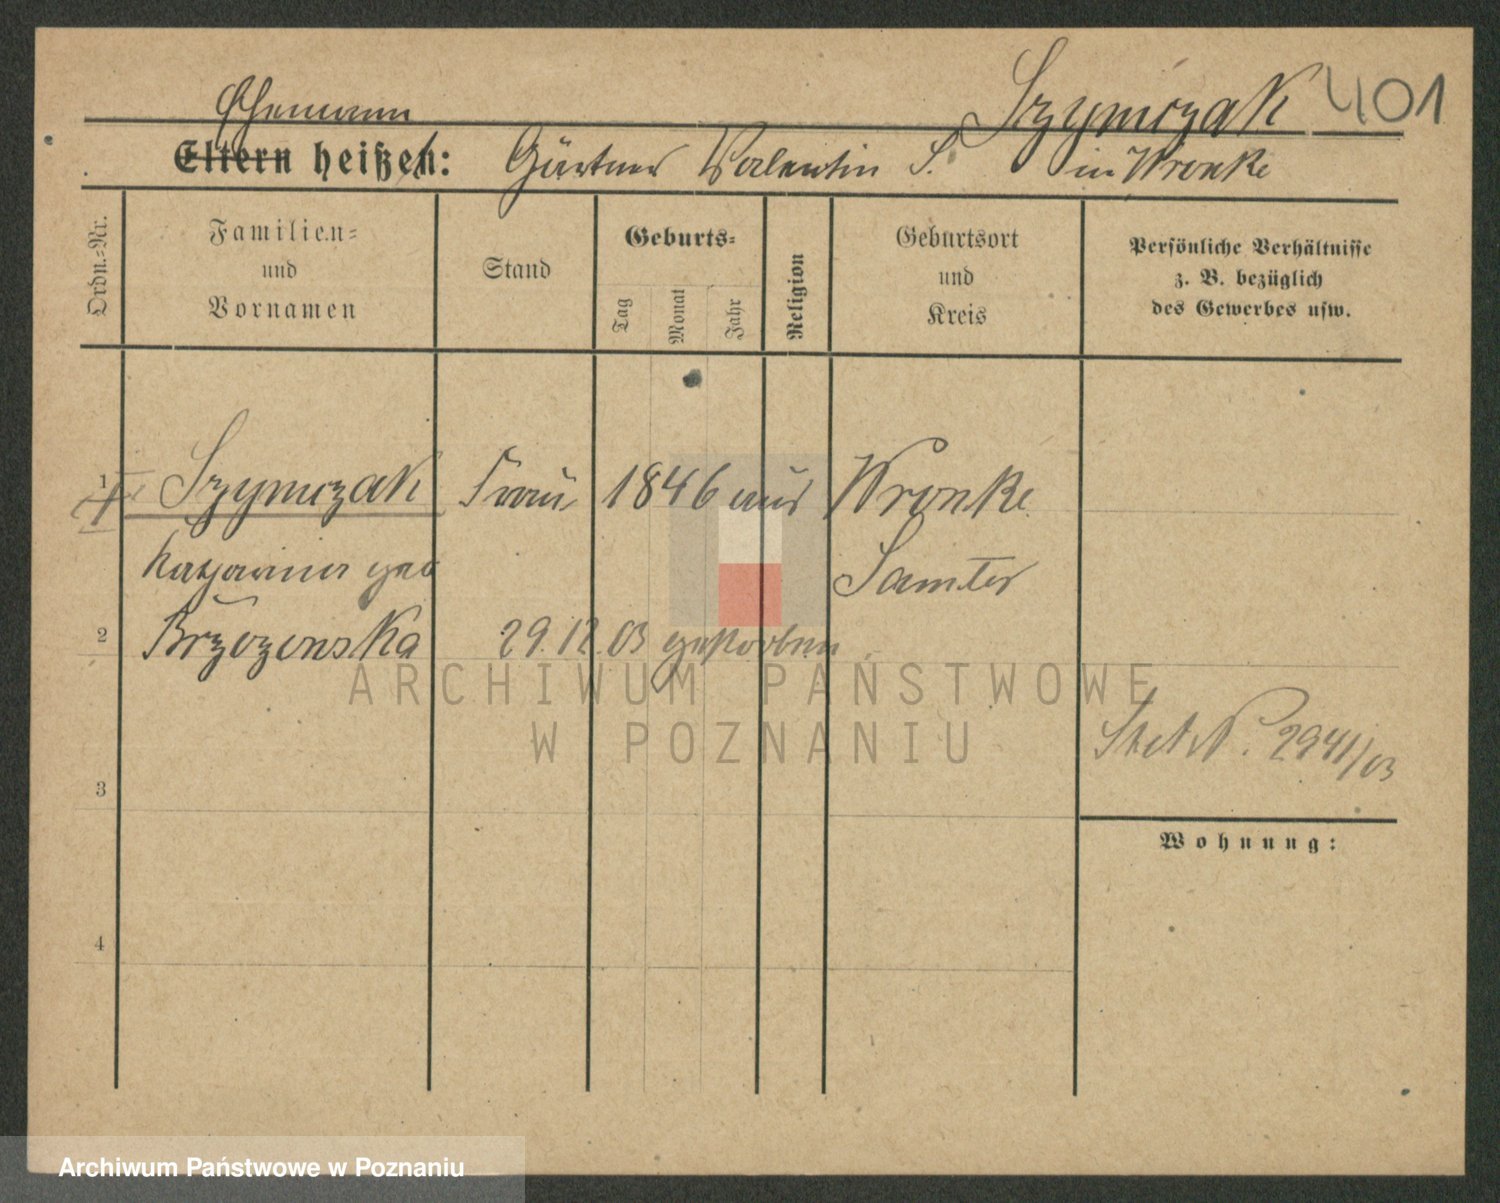 Szymczak 401
Ehemann
Eltern heißen: Gärtner Valentin S. in Wronke
Ordn.-Nr.
Familien-
und
Vornamen
Stand
Geburts-
Tag
Monat
Jahr
Religion
Geburtsort
und
Kreis
Persönliche Verhältnisse
z. B. bezüglich
des Gewerbes usw.
1 Szymczak Frau 1846 aus Wronke
Katharina geb Samter
2 Brzozowska 29.12.03 gestorben
ARCHIWUM PAŃSTWOWE
W POZNANIU
2941/03
3
Wohnung:
4
Archiwum Państwowe w Poznaniu